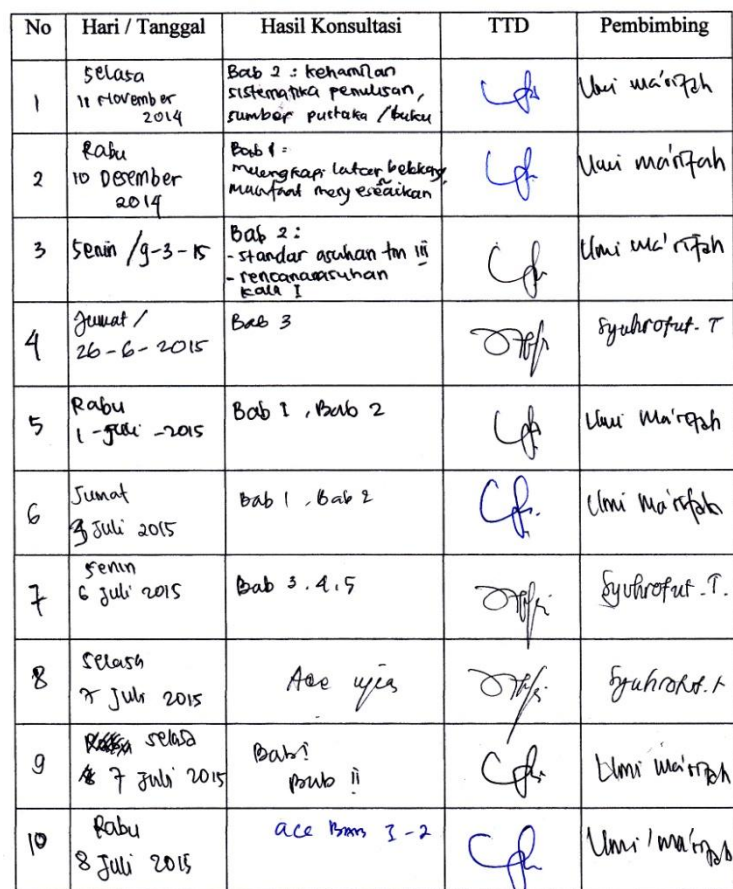 No Hari / Tanggal Hasil Konsultasi TTD Pembimbing
1
Selasa
11 November
2014
Bab 2 : kehamilan
sistematika penulisan,
sumber pustaka /buku
Umi ma'rifah
2
Rabu
10 Desember
2014
Bab 1 :
melengkapi latar belakang,
manfaat
Umi ma'rifah
3
Senin /9-3-15
Bab 2 :
- standar asuhan tm iii
- rencana asuhan
kala I
Umi ma'rifah
4
Jumat /
26-6-2015
Bab 3
Syuhrofut. T
5
Rabu
1 - Juli - 2015
Bab 1 , Bab 2
Umi Ma'rifah
6
Jumat
3 Juli 2015
Bab 1 , Bab 2
Umi Ma'rifah
7
Senin
6 Juli 2015
Bab 3 . 4 . 5
Syuhrofut . T .
8
Selasa
7 Juli 2015
Acc
Syuhrofut. T
9
selasa
7 Juli 2015
Bab i
Bab ii
Umi Ma'rifah
10
Rabu
8 Juli 2015
acc 1-2
Umi Ma'rifah